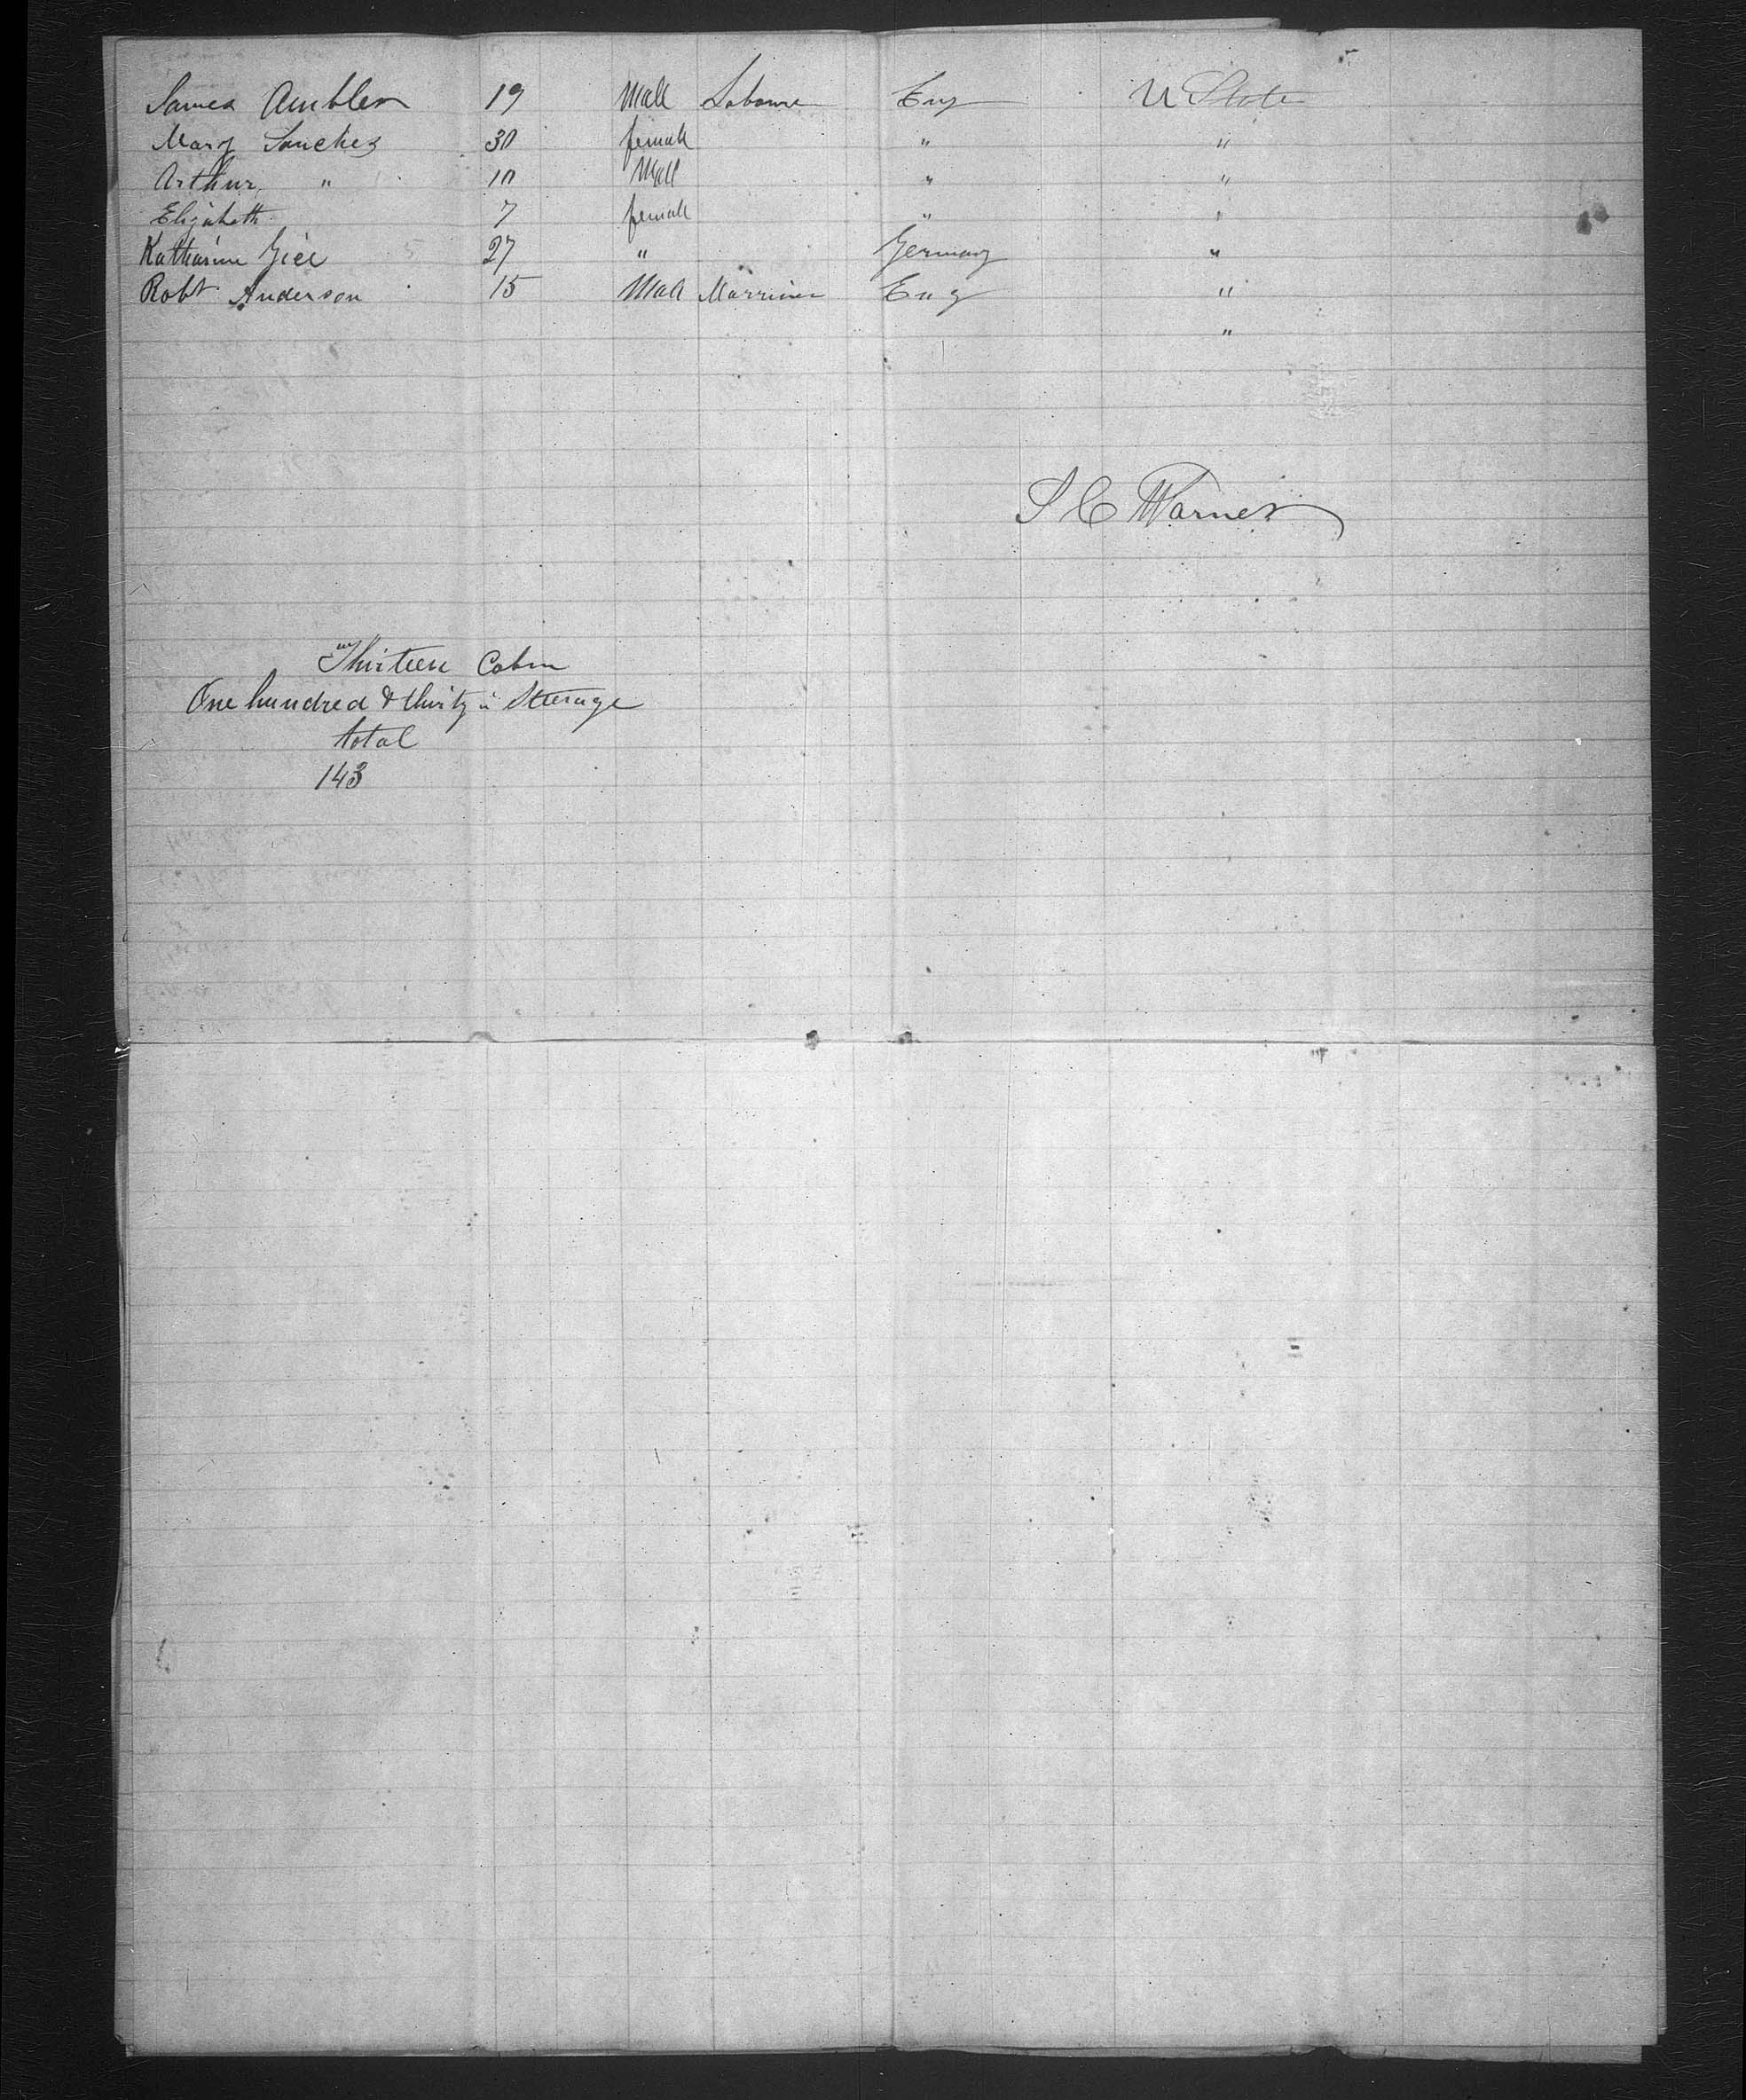 James Ambler 19 Male Laboure Eng U State
Mary Sanchez 30 female " "
Arthur " 10 Male " "
Elizabeth 7 female " "
Katharine 27 " Germany "
Robt Anderson 15 Male Marriner Eng "
"
S C Warner
in Thirteen Cabin
One hundred & thirty in Steerage
total
143